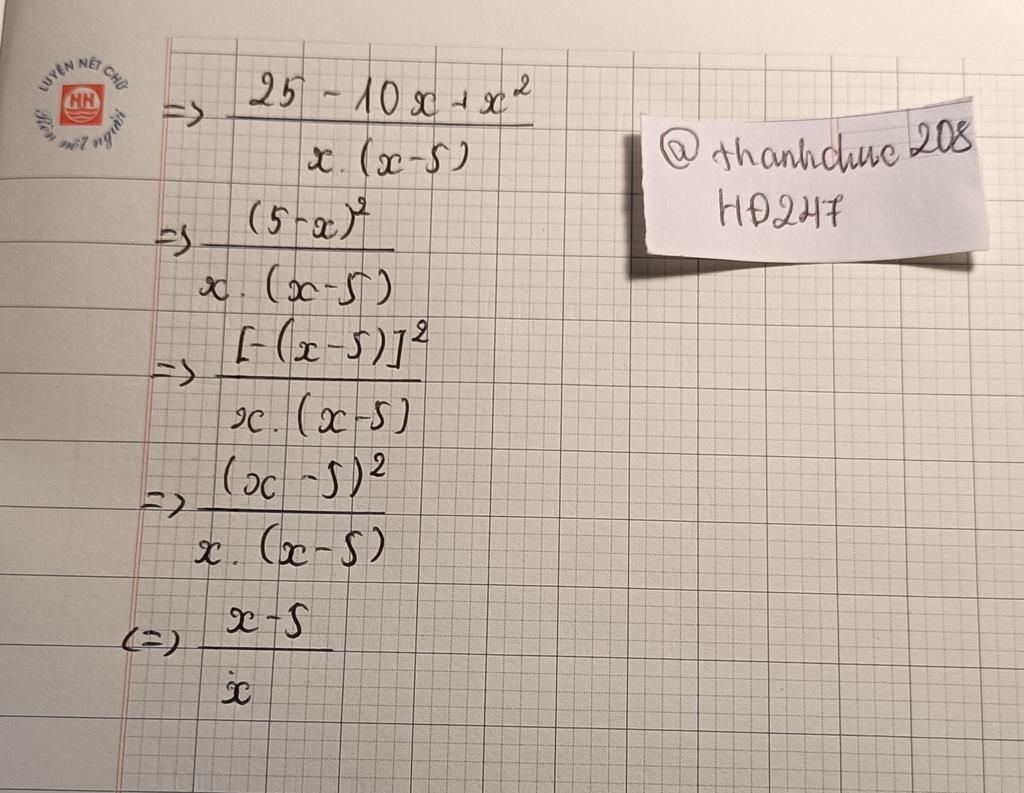 LUYỆN NÉT CHỮ
HH
Rèn nết người
=> 25 - 10x + x² / x. (x-5)
=> (5-x)² / x. (x-5)
=> [-(x-5)]² / x. (x-5)
=> (x-5)² / x. (x-5)
(=) x-5 / x
@thanhchuc208
HĐ247